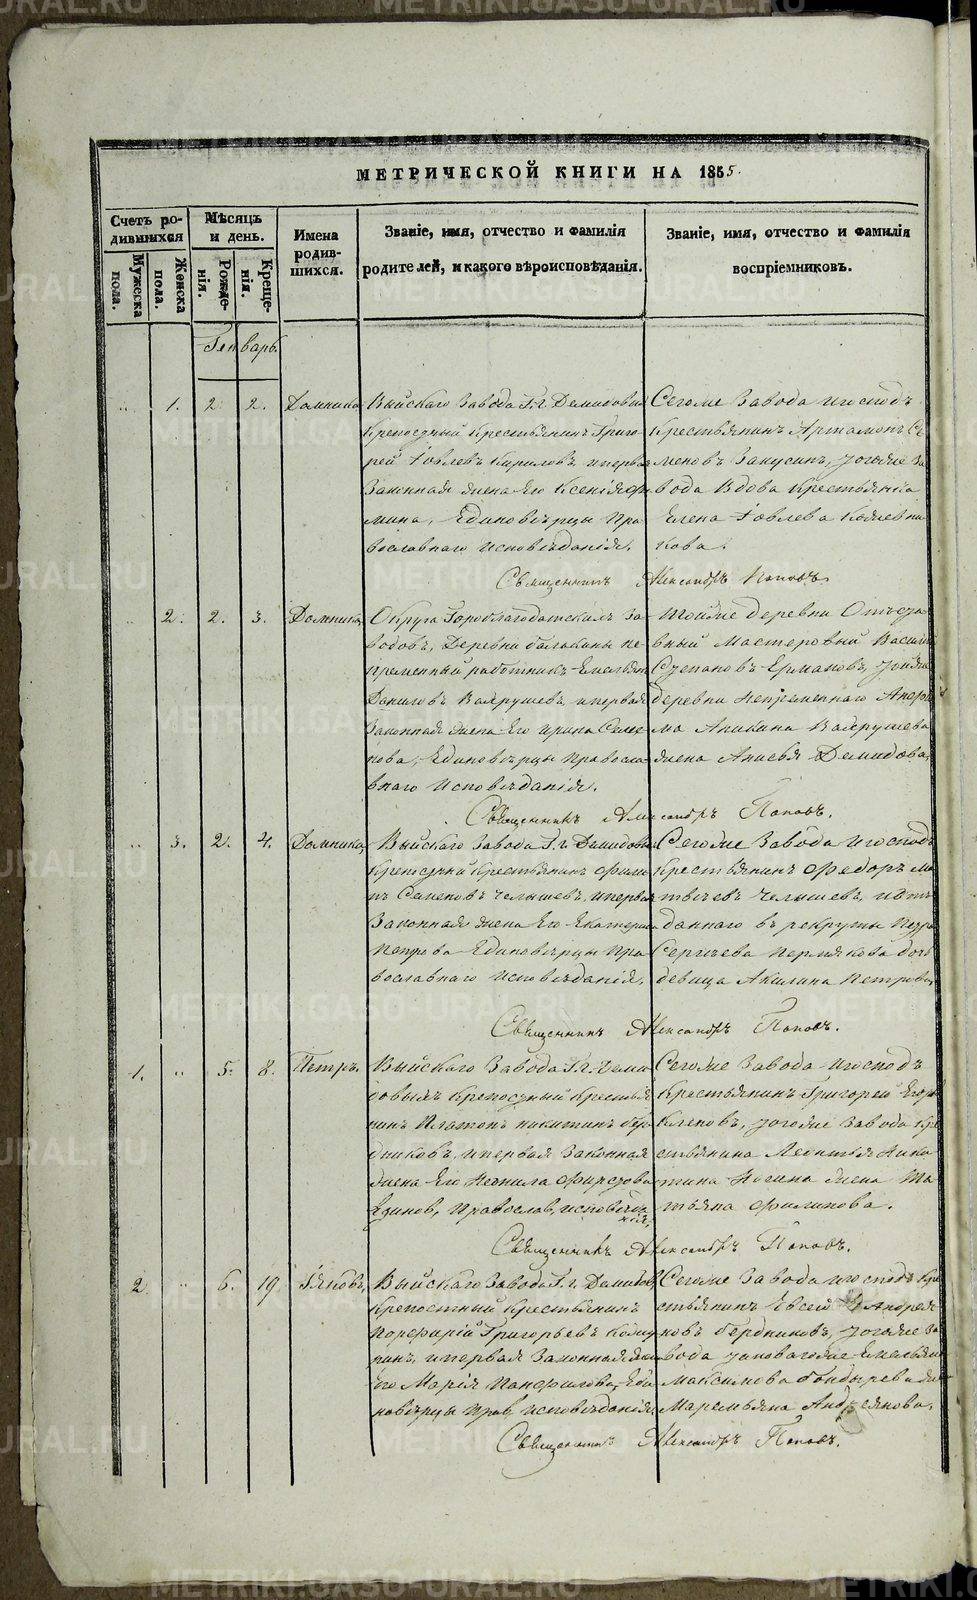 METRIKI.GASO-URAL.RU
МЕТРИЧЕСКОЙ КНИГИ НА 1855.
Счетъ родившихся
Мужеска пола.
Женска пола.
Мѣсяцъ и день.
Рожденія.
Крещенія.
Имена родившихся.
Званіе, имя, отчество и фамилія
родителей, и какого вѣроисповѣданія.
Званіе, имя, отчество и фамилія
воспріемниковъ.
Генварь.
1. 2. 2. Домника
Выйскаго Завода Г.г. Демидовыхъ
крепостный крестьянинъ Григо-
рей Іовлевъ Кириловъ и первая
Законная жена Его Ксенія
мина, Единовѣрцы Пра-
вославнаго исповѣданія.
Сегоже Завода и господъ
Крестьянинъ Артамонъ Се-
меновъ тогоже За-
вода Вдова крестьянка
Елена Іовлева
кова.
Священникъ Александръ Поповъ
2. 2. 3. Домника
Округа Гороблагодатскихъ За-
водовъ, Деревни Балакины не-
пременный работникъ Емельянъ
Даниловъ Вахрушевъ и первая
Законная жена Его Ирина Семе-
нова, Единовѣрцы Правосла-
внаго Исповѣданія.
Тойже деревни Отста-
вный Мастеровый Василій
Степановъ Ермаковъ, тойже
деревни Непременнаго
ма Аникина Вахрушева
жена Анисья Демидова.
Священникъ Александръ Поповъ.
3. 2. 4. Домника,
Выйскаго Завода Г.г. Демидовыхъ
крепостный Крестьянинъ Фили-
пъ Семеновъ Челышевъ, и первая
Законная жена Его Екатерина
Петрова Единовѣрцы Пра-
вославнаго исповѣданія,
Сегоже Завода и господъ
Крестьянинъ Федоръ Ма-
твѣевъ Челышевъ, и от-
даннаго въ рекруты Петра
Сергѣева Пермякова дочь
девица Акилина Петрова,
Священникъ Александръ Поповъ.
1. 5. 8. Петръ.
Выйскаго Завода Г.г. Деми-
довыхъ крепостный крестья-
нинъ Платонъ Никитинъ Бер-
дниковъ, и первая Законная
жена Его Неонила Фирстова
Единов, Православ, исповѣданія,
Сегоже Завода и господъ
Крестьянинъ Григорей Егоро
Клеповъ, тогоже Завода Кре-
стьянина Леонтья Ники-
тина жена Та-
тьяна Филипова.
Священникъ Александръ Поповъ.
2. 6. 19. Іяковъ,
Выйскаго Завода Г.г. Демидов,
крепостный крестьянинъ
Порфирій Григорьевъ
ринъ, и первая Законная жена
его Марія Панфилова, Еди-
новѣрцы Прав, исповѣданія
Сегоже Завода и господъ Кре-
стьянинъ Евсей Андрея-
новъ Бердниковъ, тогоже За-
вода Емельяна
Максимова Бондырева жена
Маремьяна Андреянова.
Священникъ Александръ Поповъ.